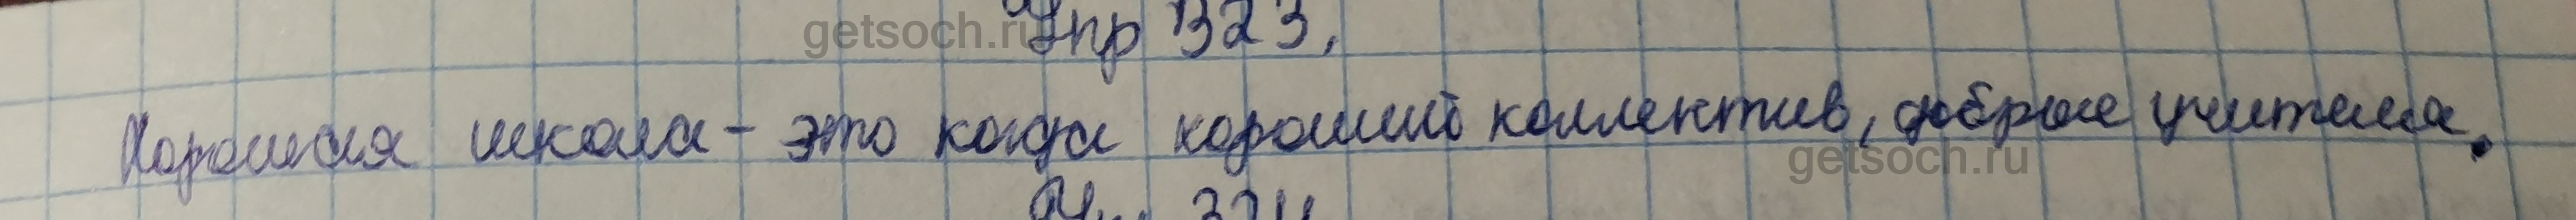 getsoch.ru
Упр 323.
Хорошая школа - это когда хороший коллектив, добрые учителя.
getsoch.ru
324